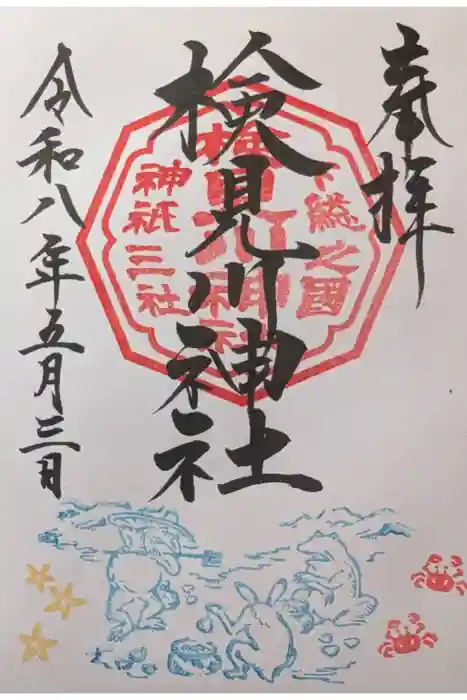 奉拝
下総之國
検見川神社
神祇三社
検見川神社
令和八年五月三日